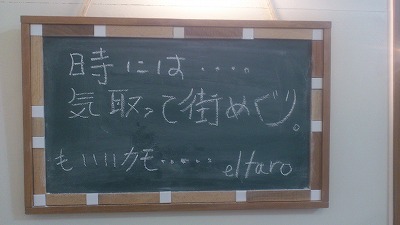 時には....
気取って街めぐり。
も!!!!カモ......
eltaro